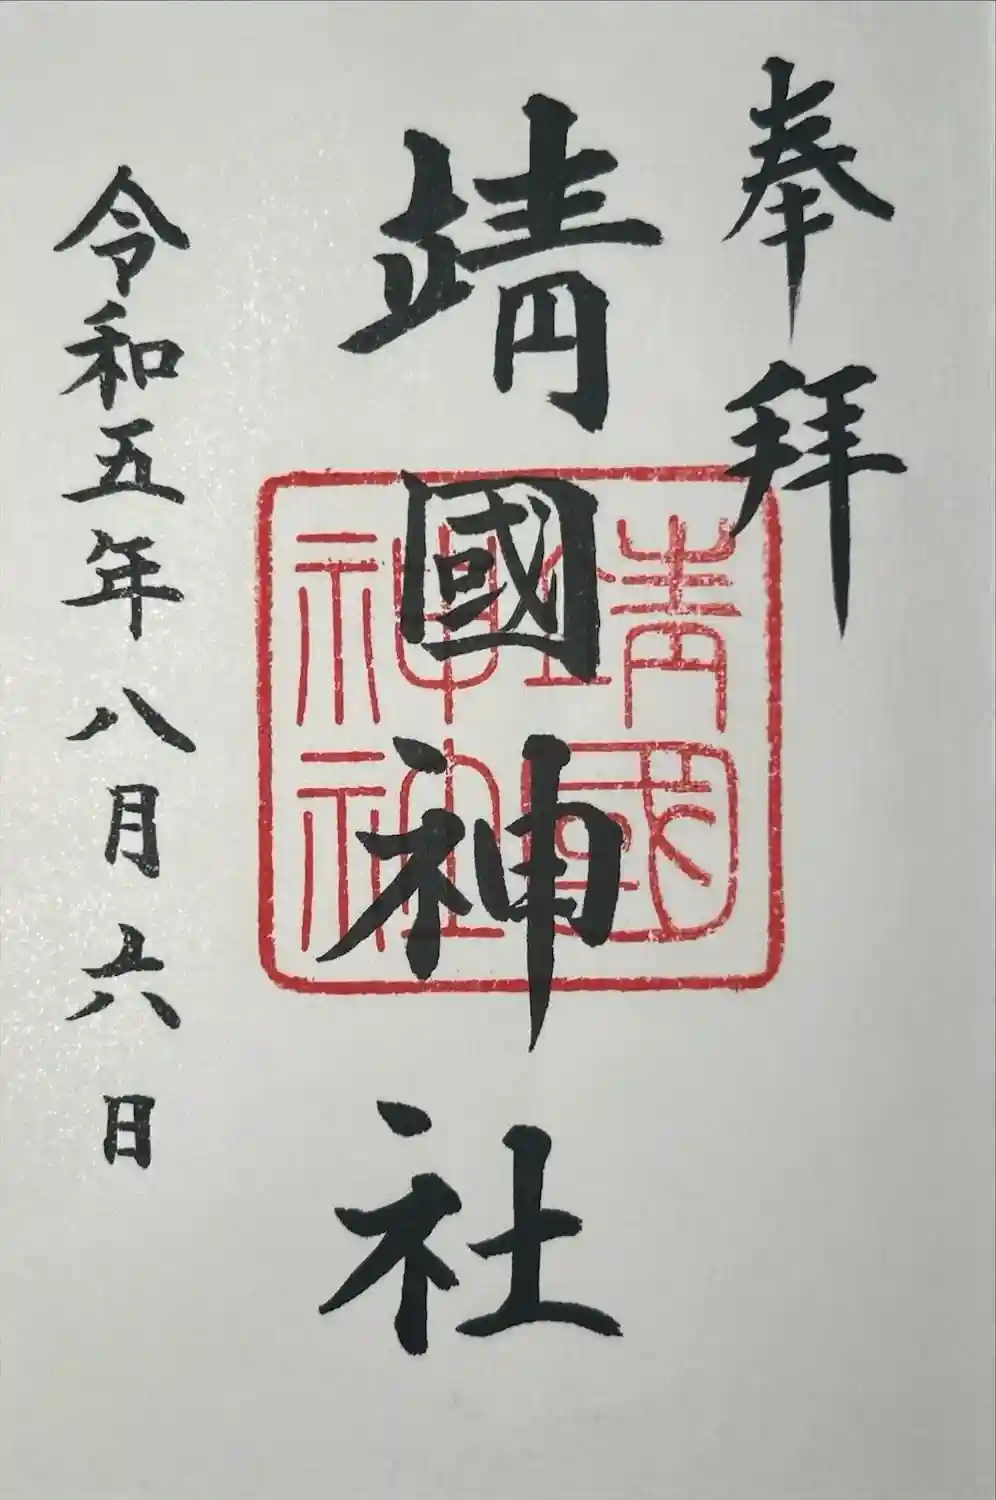 奉拝
靖國神社
靖國
神社
令和五年八月六日